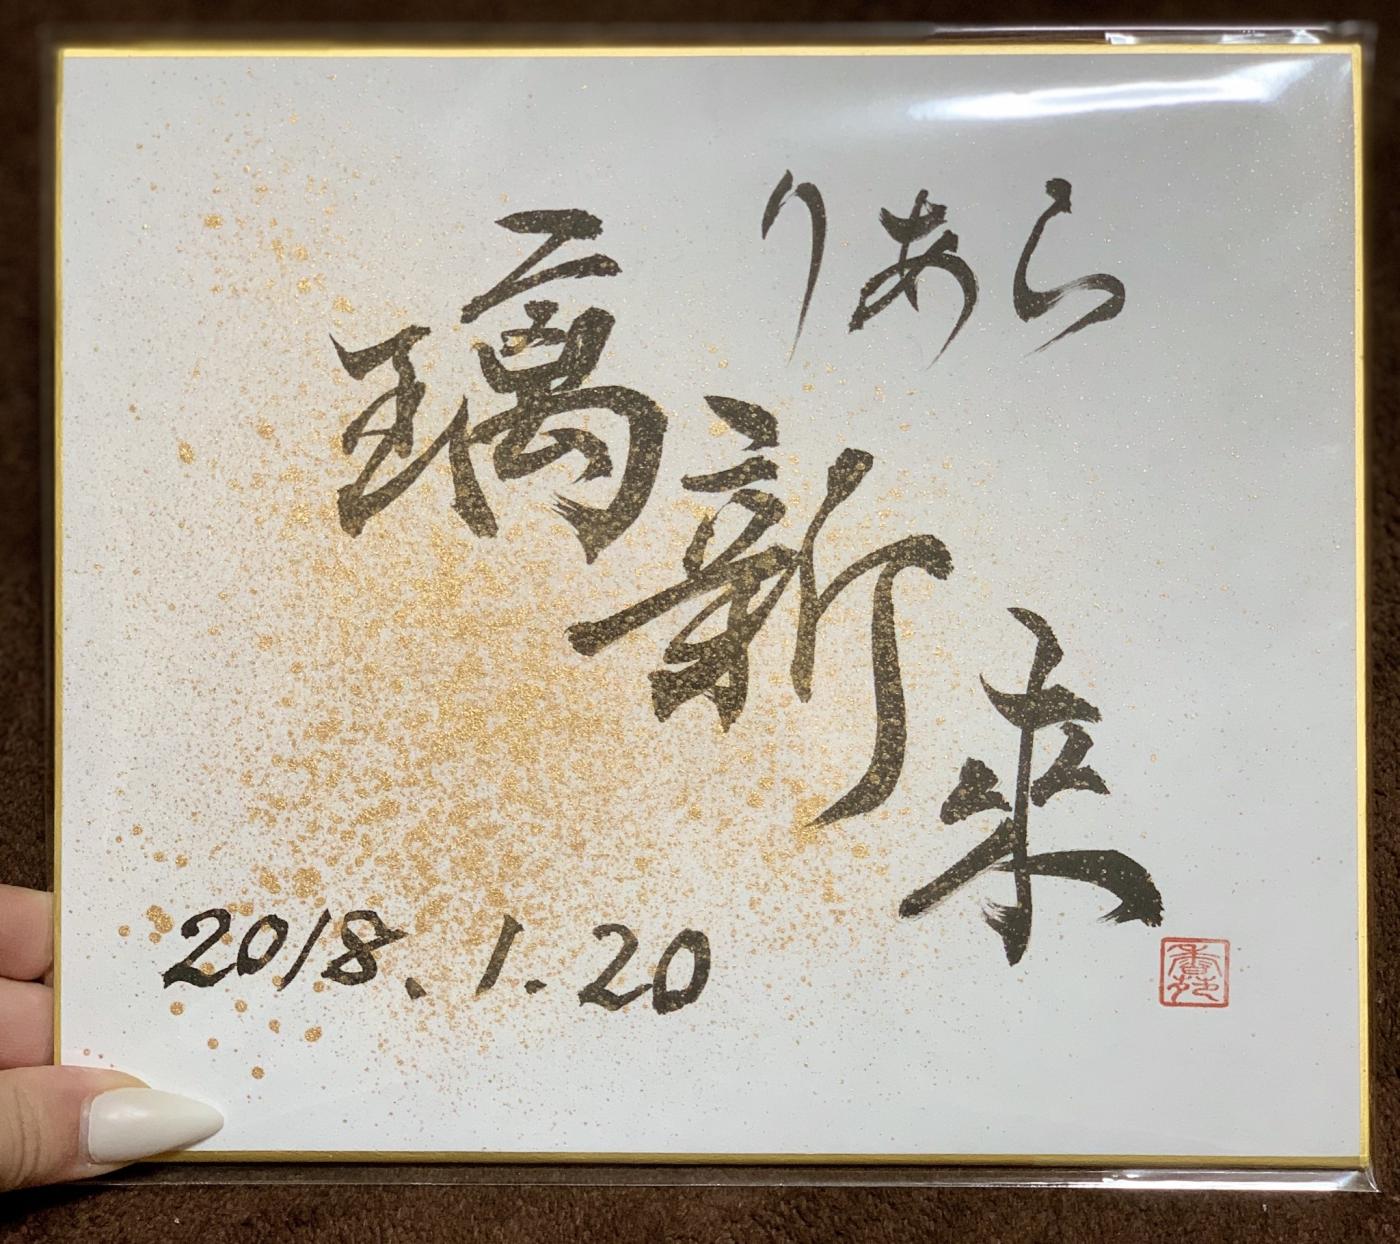 りあら
璃新来
2018.1.20